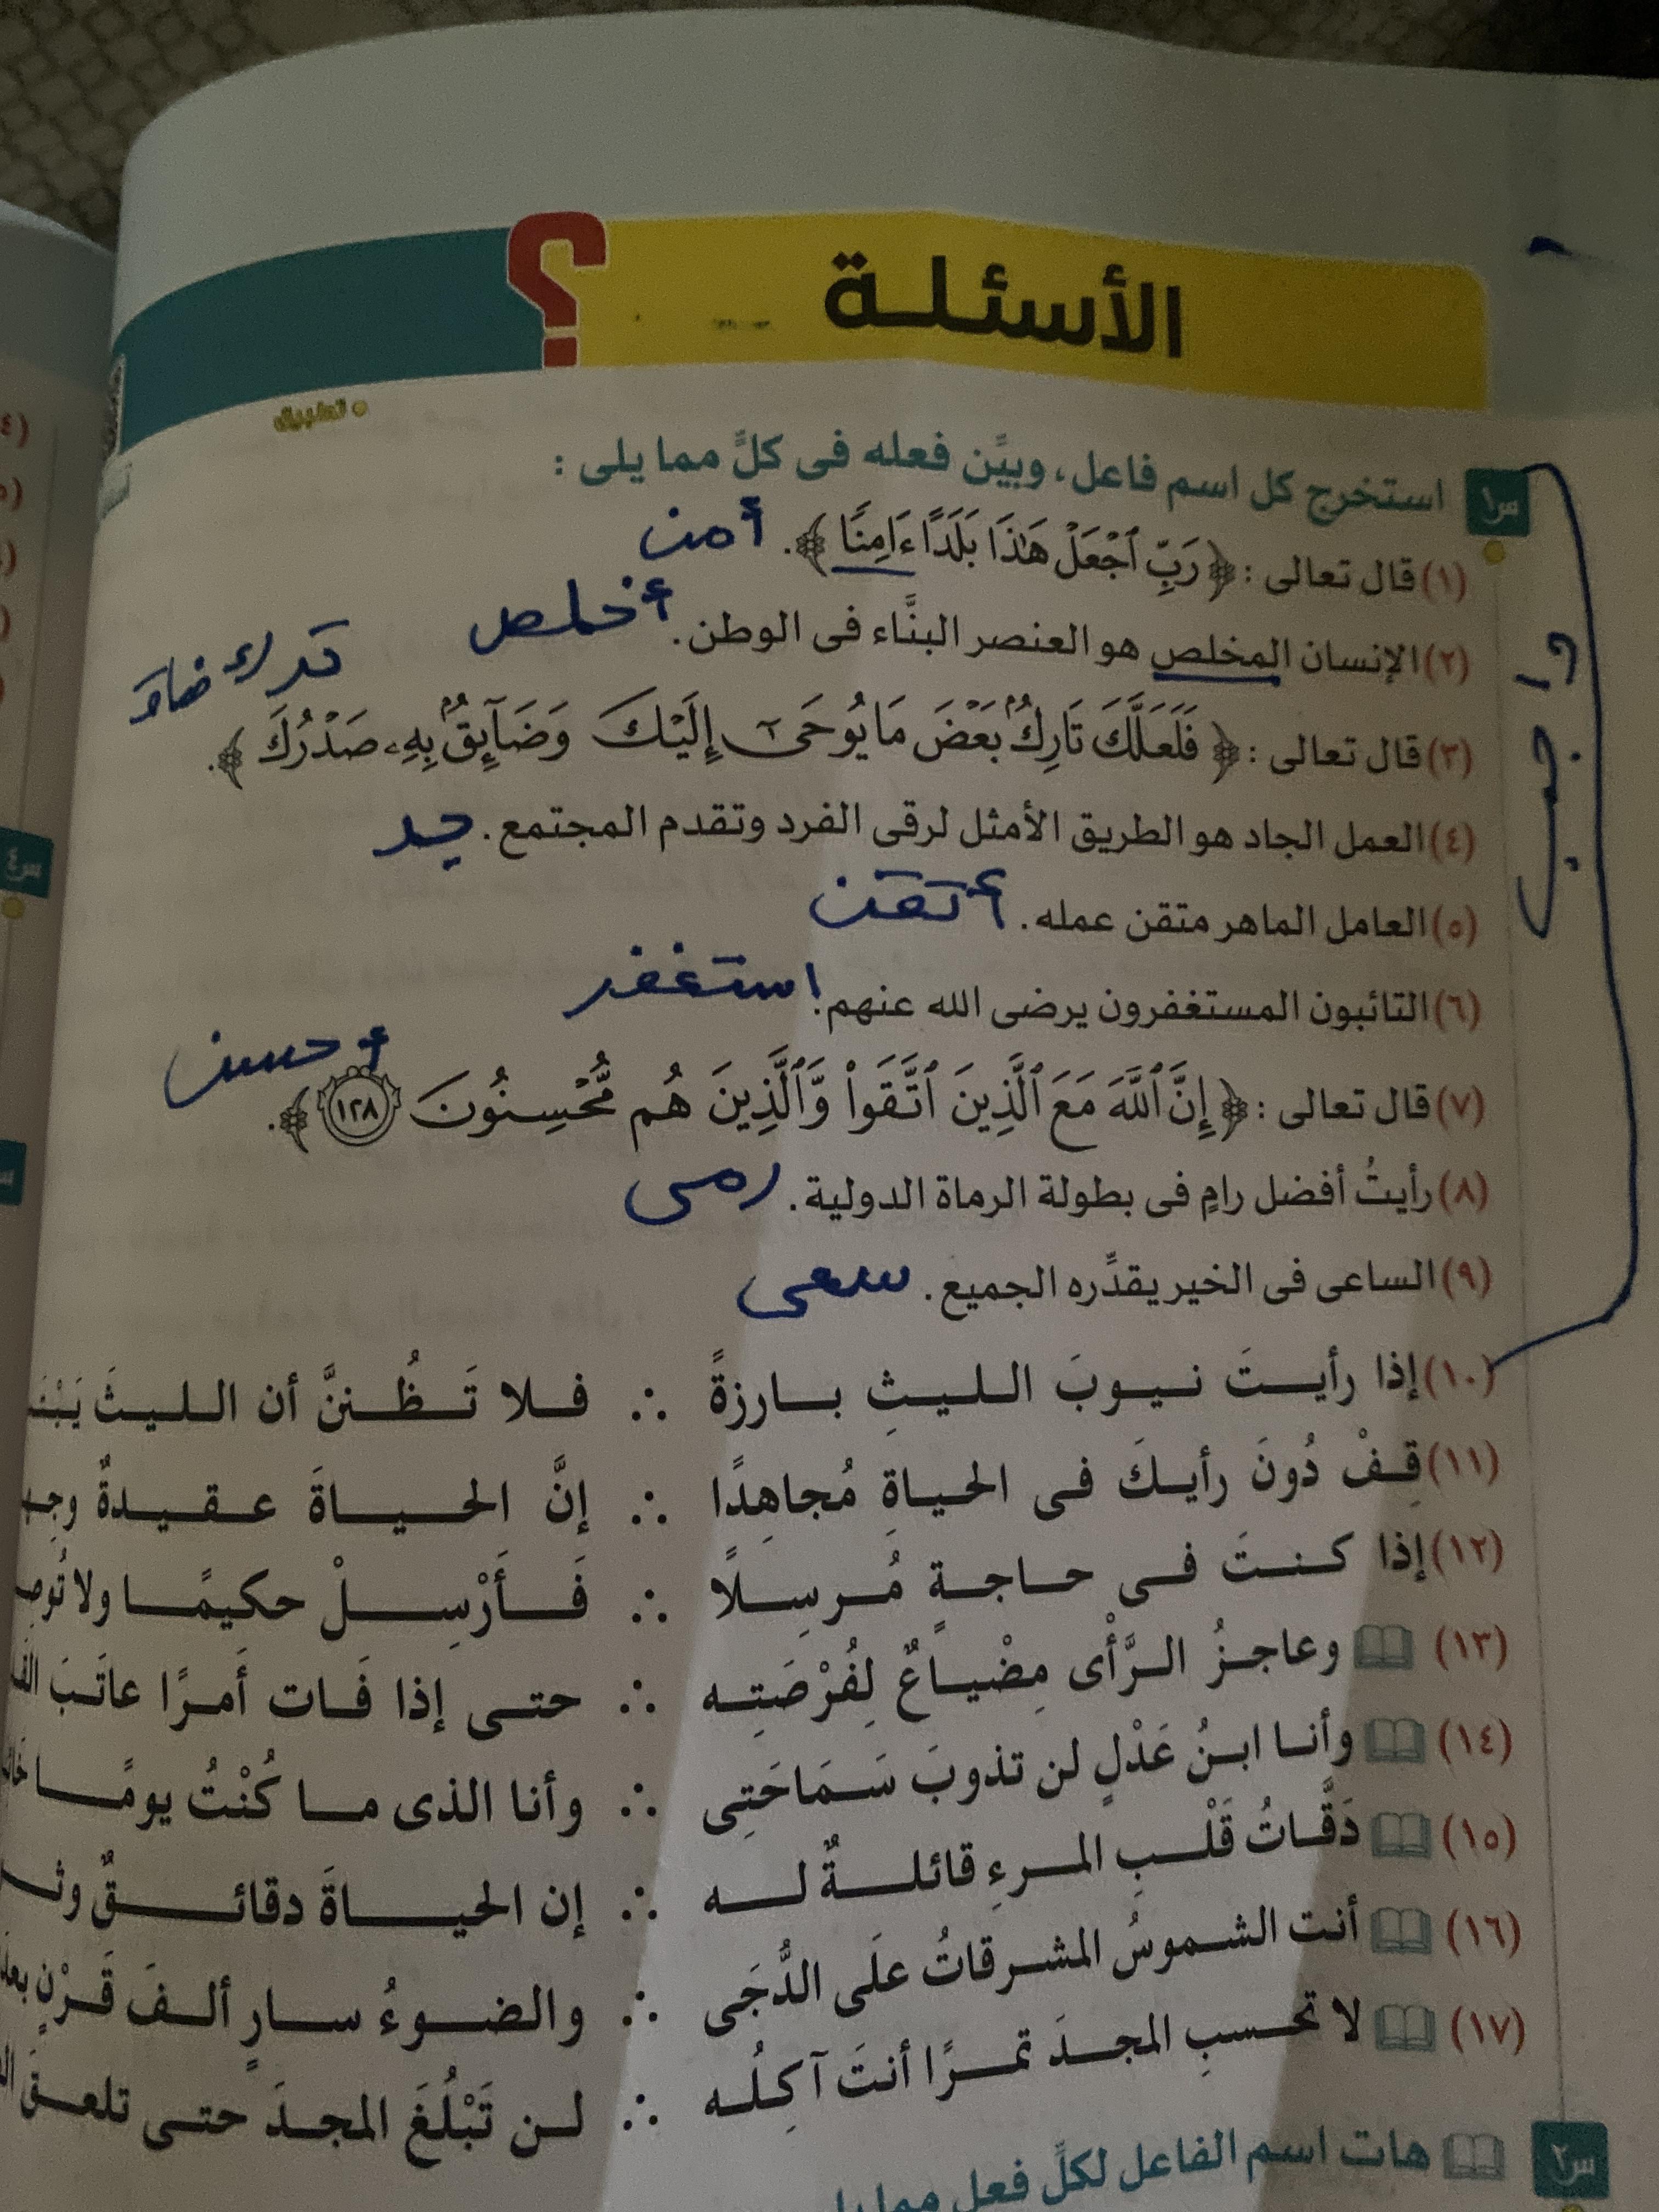 الأسئلة ؟
• تطبيق
س١ استخرج كل اسم فاعل، وبيِّن فعله فى كلٍّ مما يلى :
(١) قال تعالى : ﴿ رَبِّ ٱجْعَلْ هَٰذَا بَلَدًا ءَامِنًا ﴾. أمن
(٢) الإنسان المخلص هو العنصر البنَّاء فى الوطن. أخلص
ترك ضاق
(٣) قال تعالى : ﴿ فَلَعَلَّكَ تَارِكُۢ بَعْضَ مَا يُوحَىٰٓ إِلَيْكَ وَضَآئِقُۢ بِهِۦ صَدْرُكَ ﴾.
(٤) العمل الجاد هو الطريق الأمثل لرقى الفرد وتقدم المجتمع. جد
(٥) العامل الماهر متقن عمله. أتقن
(٦) التائبون المستغفرون يرضى الله عنهم. استغفر
(٧) قال تعالى : ﴿ إِنَّ ٱللَّهَ مَعَ ٱلَّذِينَ ٱتَّقَوا۟ وَّٱلَّذِينَ هُم مُّحْسِنُونَ ١٢٨ ﴾. أحسن
(٨) رأيتُ أفضل رامٍ فى بطولة الرماة الدولية. رمى
(٩) الساعى فى الخير يقدِّره الجميع. سعى
(١٠) إذا رأيـتَ نيـوبَ الليثِ بـارزةً ∴ فـلا تَـظُـننَّ أن الليثَ
(١١) قِـفْ دُونَ رأيـكَ فى الحياةِ مُجاهِدًا ∴ إنَّ الحيـاةَ عـقـيـدةٌ
(١٢) إذا كـنـتَ فـى حـاجـةٍ مُـرسِـلاً ∴ فَـأَرْسِـلْ حكيمًـا ولا
(١٣) وعاجـزُ الـرَّأْى مِضْيـاعٌ لِفُرْصَتِـه ∴ حتـى إذا فَـات أَمـرًا عاتَـبَ
(١٤) وأنـا ابـنُ عَدْلٍ لن تذوبَ سَـمَاحَتِى ∴ وأنا الذى مـا كُنْتُ يومًـا
(١٥) دَقَّـاتُ قَلْـبِ المـرءِ قائلـةٌ لـه ∴ إن الحيـاةَ دقائـقٌ
(١٦) أنت الشـموسُ المشـرقاتُ علَى الدُّجَى ∴ والضـوءُ سـارٍ ألـفَ قَـرْنٍ
(١٧) لا تحسـبِ المجـدَ تمـرًا أنتَ آكِـلُـه ∴ لـن تَبْلُغَ المجـدَ حتـى تلعـقَ
س٢ هات اسم الفاعل لكلِّ فعل مما يلى
واجب